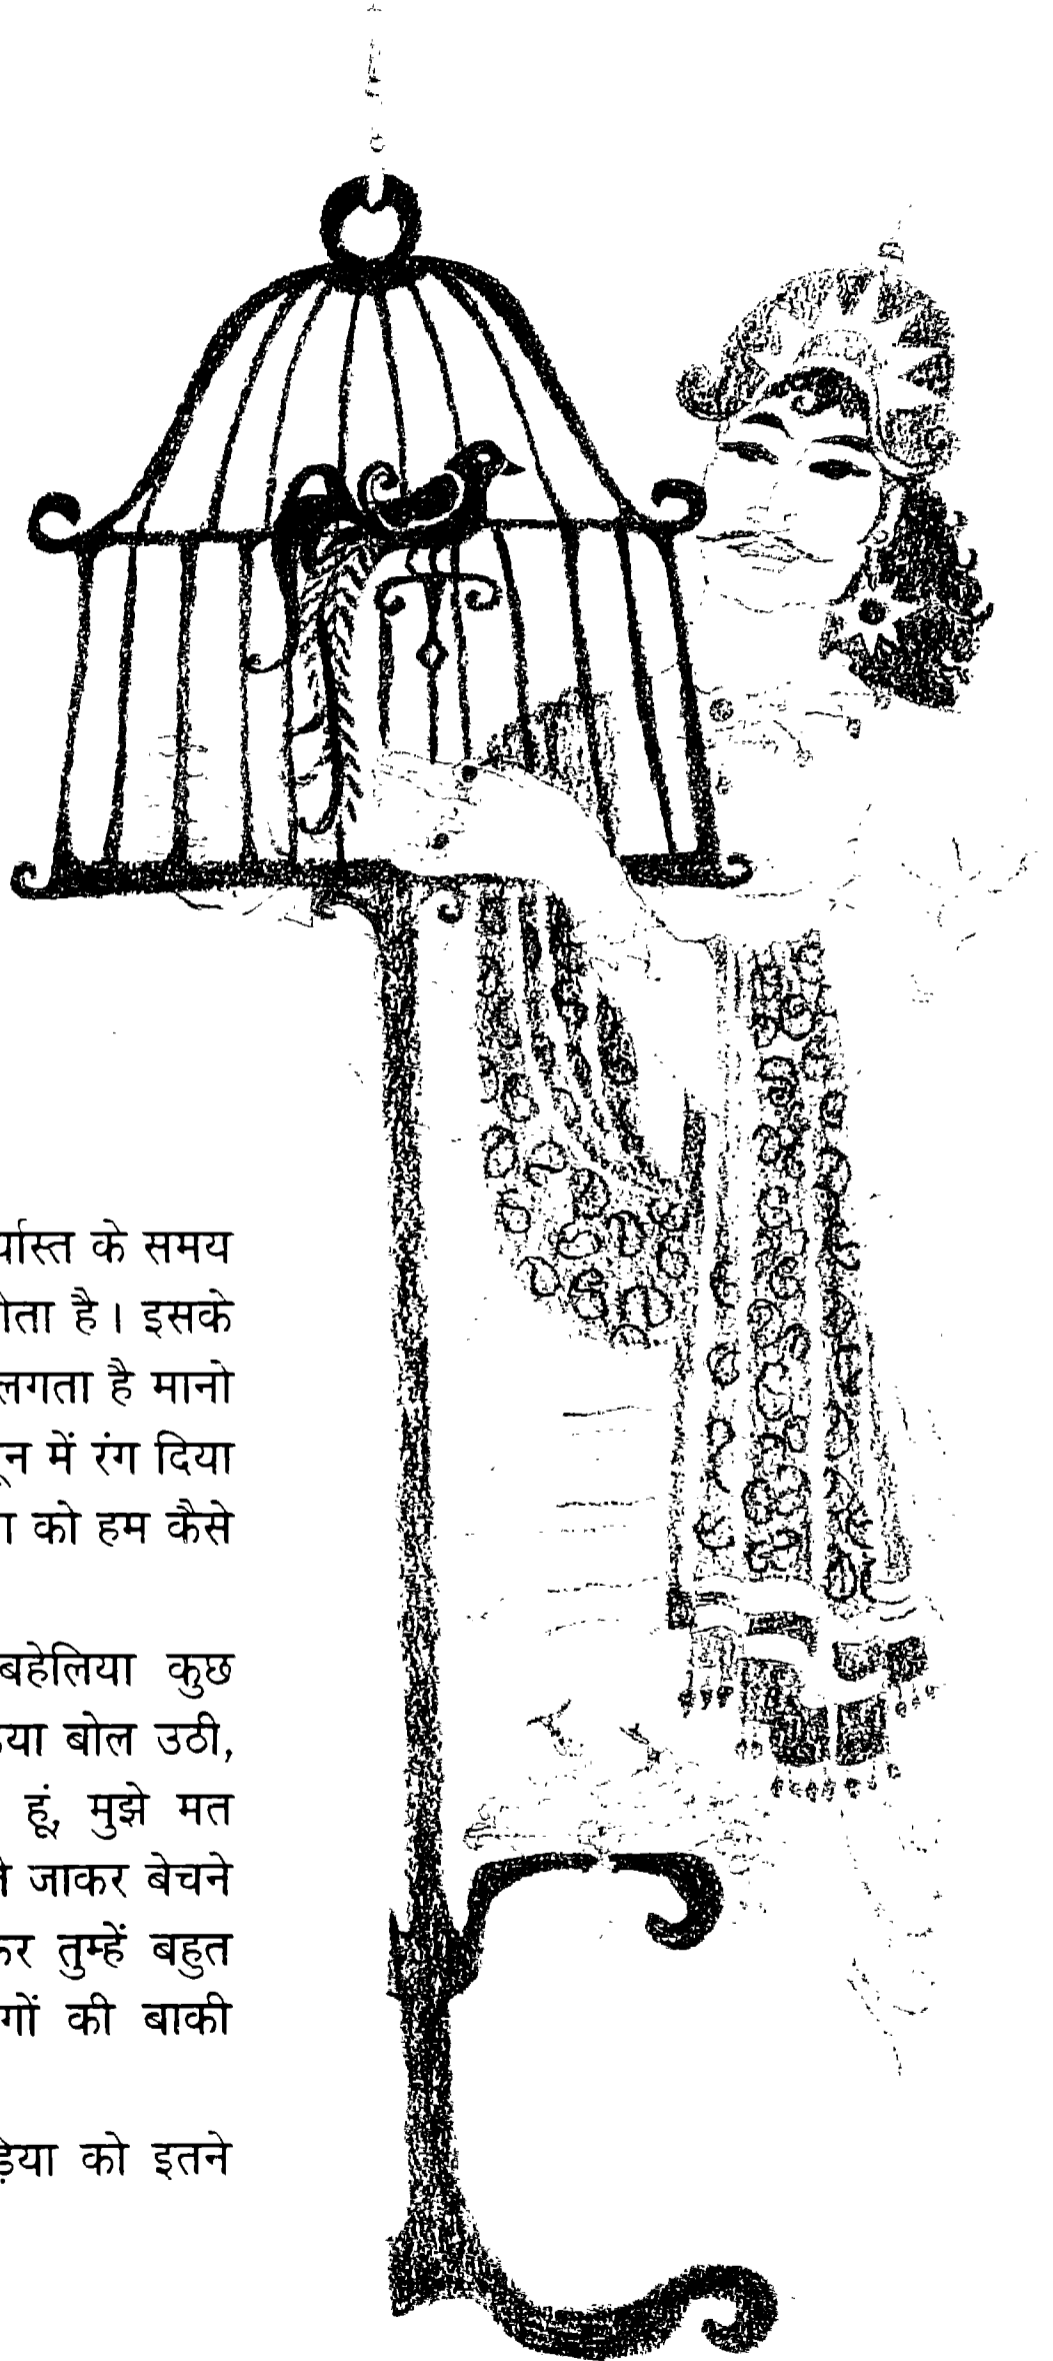 के समय
है। इसके
लगता है मानो
में रंग दिया
को हम कैसे
बहेलिया कुछ
बोल उठी,
हूं, मुझे मत
जाकर बेचने
तुम्हें बहुत
की बाकी
को इतने